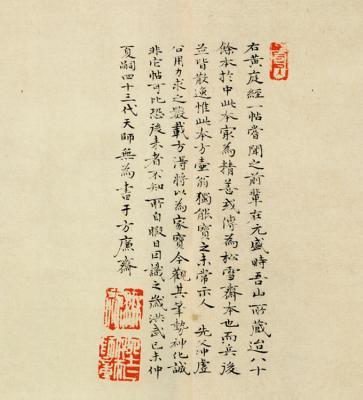 右黃庭經一帖嘗聞之前輩在元盛時吾山所藏迨八十
餘本於中此本寂為精善或傳為松雪齋本也而兵後
並皆散逸惟此本方壺翁獨能寶之未常示人 先父沖虛
公用力求之數載方得將以為家寶今觀其筆勢神化誠
非它帖可比恐後来者不知所自暇日因識之歲洪武己未仲
夏嗣四十三代天師無為書于方廉齋